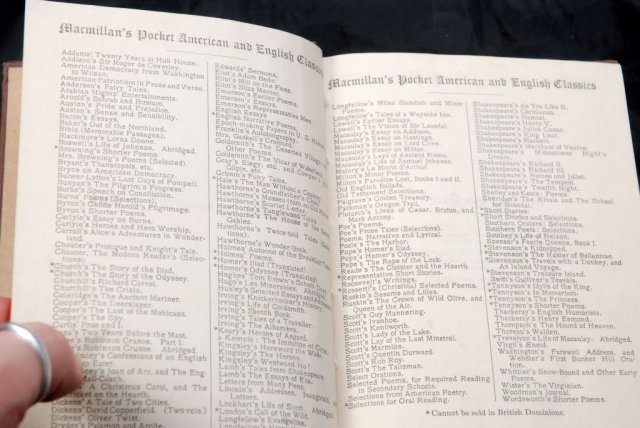 Macmillan's Pocket American and English Classics
Addams' Twenty Years at Hull House.
Addison's Sir Roger de Coverley.
American Democracy from Washington
to Wilson.
American Patriotism in Prose and Verse.
Andersen's Fairy Tales.
Arabian Nights' Entertainments.
Arnold's Sohrab and Rustum.
Austen's Pride and Prejudice.
Austen's Sense and Sensibility.
Bacon's Essays.
Baker's Out of the Northland.
Bible (Memorable Passages).
Blackmore's Lorna Doone.
Boswell's Life of Johnson. Abridged.
*Browning's Shorter Poems.
Mrs. Browning's Poems (Selected).
Bryant's Thanatopsis, etc.
Bryce on American Democracy.
Bulwer-Lytton's Last Days of Pompeii.
Bunyan's The Pilgrim's Progress.
Burke's Speech on Conciliation.
Burns' Poems (Selections).
Byron's Childe Harold's Pilgrimage.
Byron's Shorter Poems.
Carlyle's Essay on Burns.
Carlyle's Heroes and Hero Worship.
Carroll's Alice's Adventures in Wonder-
land.
Chaucer's Prologue and Knight's Tale.
Chaucer, The Modern Reader's (Selec-
tions).
*Church's The Story of the Iliad.
*Church's The Story of the Odyssey.
Churchill's Richard Carvel.
Churchill's The Crisis.
Coleridge's The Ancient Mariner.
Cooper's The Deerslayer.
Cooper's The Last of the Mohicans.
Cooper's The Spy.
Curtis' Prue and I.
Two Years Before the Mast.
Robinson Crusoe. Part I.
Robinson Crusoe. Abridged.
Confessions of an English
Joan of Arc, and The Eng
Mail-Coach.
A Christmas Carol, and
the Hearth.
Dickens' A Tale of Two Cities.
Dickens' David Copperfield. (Two vols.)
Dickens' Oliver Twist.
Dryden's Palamon and Arcite.
Edwards' Sermons.
Eliot's Adam Bede.
Eliot's Mill on the Floss.
Eliot's Silas Marner.
Emerson's Earlier Poems.
Emerson's Essays.
Emerson's Representative Men.
English Essays.
English Narrative Poems.
Epoch-making Papers in U. S. H
Franklin's Autobiography.
Mrs. Gaskell's Cranford.
Goldsmith's The Deserted Village,
Other Poems.
Goldsmith's The Vicar of Wakefield.
Gray's Elegy, etc., and Cowper's
Gilpin, etc.
Grimm's Fairy Tales.
Hale's The Man Without a Country
Hawthorne's Grandfather's Chair.
Hawthorne's Mosses from
Hawthorne's Tanglewood Tales.
Hawthorne's The House of the
Gables.
Hawthorne's Twice-told Tales (Selec-
tions).
Hawthorne's Wonder-Book.
Holmes' Autocrat of the Breakfast
Holmes' Poems.
Homer's Iliad (Translated)
Homer's Odyssey (Translated)
Hughes' Tom Brown's School Days.
Hugo's Les Miserables.
Huxley's Selected Essays and
Irving's Knickerbocker
Irving's Life of Goldsmith.
Irving's Sketch Book.
Irving's Tales of a Traveller.
Irving's The Alhambra.
*Keary's Heroes of Asgard.
à Kempis: The Imitation of
Kingsley's Hereward the Wake.
Kingsley's The Heroes.
Kingsley's Westward Ho!
Lamb's Tales from Shakespeare.
Lamb's The Essays of Elia.
Letters from Many Pens.
Lincoln's Addresses, Inaugurals,
Letters.
Lockhart's Life of Scott. Abridged.
*London's Call of the Wild.
Longfellow's Evangeline.
Macmillan's Pocket American and English Classics
Longfellow's Miles Standish and Minor
Poems.
Longfellow's Tales of a Wayside Inn.
Lowell's Earlier Essays.
Lowell's The Vision of Sir Launfal.
Macaulay's Essay on Addison.
Macaulay's Essay on Hastings.
Macaulay's Essay on Lord Clive.
Macaulay's Essay on Milton.
Macaulay's Lays of Ancient Rome.
Macaulay's Life of Samuel Johnson.
Malory's Le Morte d'Arthur.
Milton's Minor Poems.
Milton's Paradise Lost, Books I and II.
Old English Ballads.
Old Testament Selections.
Palgrave's Golden Treasury.
Parkman's Oregon Trail.
Plutarch's Lives of Cæsar, Brutus, and
Mark Antony.
Poe's Poems.
Poe's Prose Tales (Selections).
Poems, Narrative and Lyrical.
Poole's The Harbor.
Pope's Homer's Iliad.
Pope's Homer's Odyssey.
Pope's The Rape of the Lock.
Reade's The Cloister and the Hearth
*Representative Short Stories.
*Roosevelt's Writings.
*Rossetti's (Christina) Selected Poems.
Ruskin's Sesame and Lilies.
Ruskin's The Crown of Wild Olive, and
Queen of the Air.
Scott's Guy Mannering.
Scott's Ivanhoe.
Scott's Kenilworth.
Scott's Lady of the Lake.
Scott's Lay of the Last Minstrel.
Scott's Marmion.
Scott's Quentin Durward.
Scott's Rob Roy.
Scott's The Talisman.
Select Orations.
Selected Poems, for Required Reading
in Secondary Schools.
*Selections from American Poetry.
*Selections for Oral Reading.
Shakespeare's As You Like It.
Shakespeare's Coriolanus.
Shakespeare's Hamlet.
Shakespeare's Henry V.
Shakespeare's Julius Cæsar.
Shakespeare's King Lear.
Shakespeare's Macbeth.
Shakespeare's Merchant of Venice.
Shakespeare's Midsummer Night's
Dream.
Shakespeare's Richard II.
Shakespeare's Richard III.
Shakespeare's Romeo and Juliet.
Shakespeare's The Tempest.
Shakespeare's Twelfth Night.
Shelley and Keats: Poems.
Sheridan's The Rivals and The School
for Scandal.
*Short Stories.
*Short Stories and Selections.
Southern Orators: Selections.
Southern Poets: Selections.
Southey's Life of Nelson.
Spenser's Faerie Queene, Book I.
Stevenson's Kidnapped.
*Stevenson's The Master of Ballantrae.
*Stevenson's Travels with a Donkey, and
An Inland Voyage.
*Stevenson's Treasure Island.
Swift's Gulliver's Travels.
*Tennyson's Idylls of the King.
*Tennyson's In Memoriam.
*Tennyson's The Princess.
*Tennyson's Shorter Poems.
Thackeray's English Humorists.
Thackeray's Henry Esmond.
Thompson's The Hound of Heaven.
Thoreau's Walden.
*Trevelyan's Life of Macaulay. Abridged.
Virgil's Æneid.
Washington's Farewell Address, and
Webster's First Bunker Hill Ora-
tion.
Whittier's Snow-Bound and Other Early
Poems.
Wister's The Virginian.
Woodman's Journal.
Wordsworth's Shorter Poems.
* Cannot be sold in British Dominions.